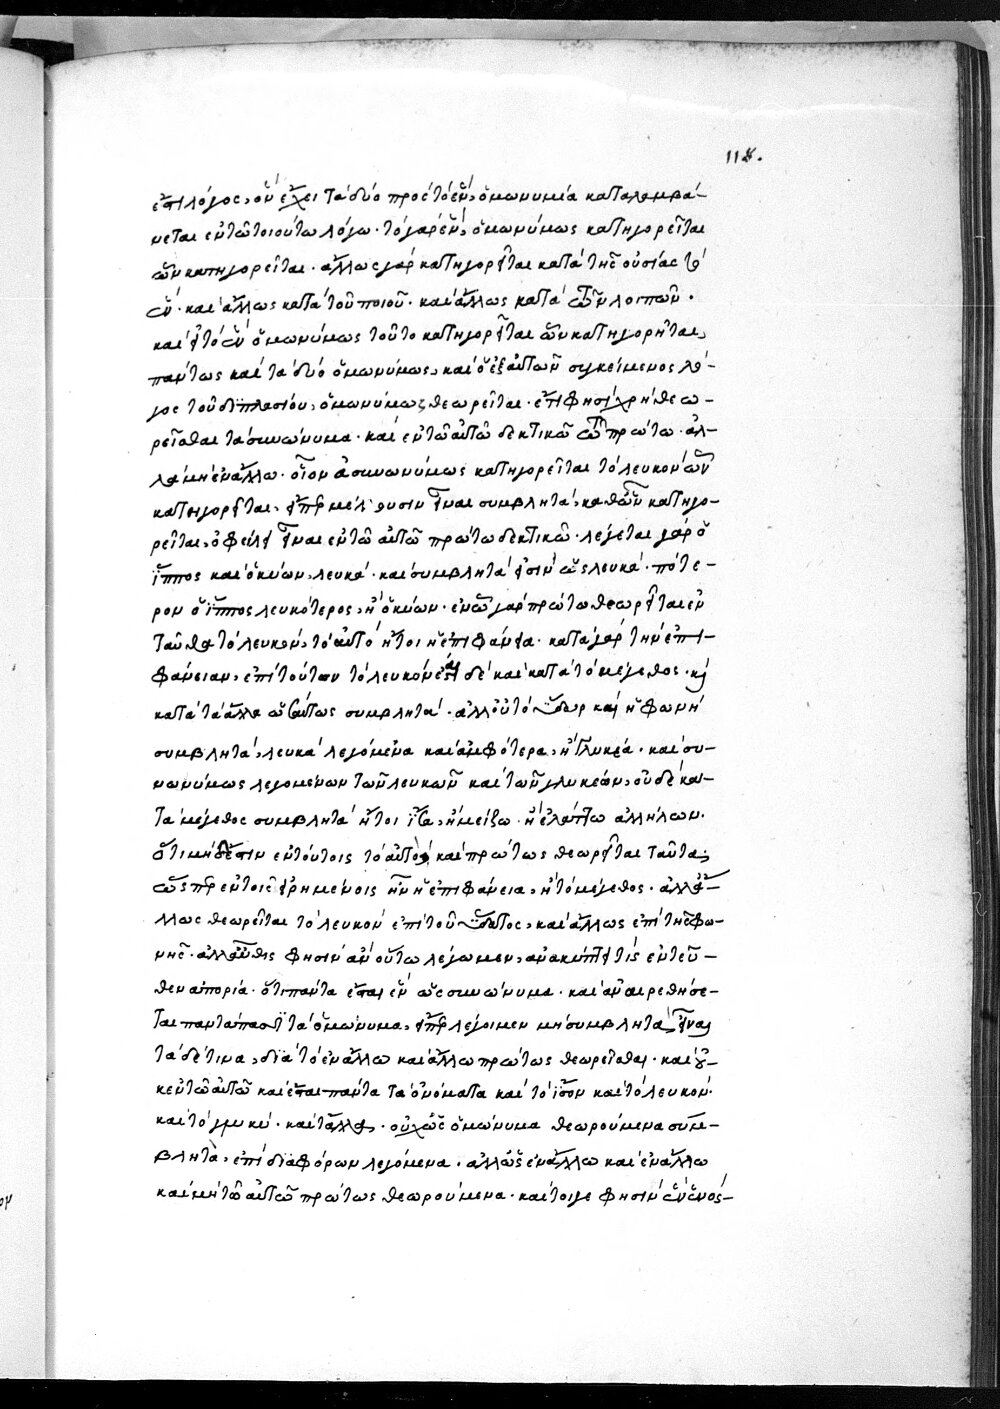 118.
ἐστι λόγος, ὃν ἔχει τὰ δύο πρὸς τὸ ἕν, ὁμωνυμία καταλαμβά-
νεται ἐν τῶ τοιούτω λόγω. τὸ γὰρ ἓν, ὁμωνύμως κατηγορεῖται
ὧν κατηγορεῖται. ἄλλως γὰρ κατηγορεῖται κατὰ τῆς οὐσίας τὸ
ἕν. καὶ ἄλλως κατὰ τοῦ ποιοῦ. καὶ ἄλλως κατὰ τῶν λοιπῶν.
καὶ εἰ τὸ ἓν ὁμωνύμως τοῦτο κατηγορεῖται ὧν κατηγορεῖται,
πάντως καὶ τὰ δύο ὁμωνύμως, καὶ ὁ ἐξ αὐτῶν συγκείμενος λό-
γος τοῦ διπλασίου, ὁμωνύμως θεωρεῖται. ἔτι φησὶ χρὴ θεω-
ρεῖσθαι τὰ συνώνυμα. καὶ ἐν τῶ αὐτῶ δεκτικῶ τῶ πρώτω. ἀλ-
λὰ μὴ ἐν ἄλλω. οἷον ἆ συνωνύμως κατηγορεῖται τὸ λευκὸν ὧν
κατηγορεῖται, εἴπερ μέλλουσιν εἶναι συμβλητὰ, καθ' ὧν κατηγο-
ρεῖται, ὀφείλει εἶναι ἐν τῶ αὐτῶ πρώτω δεκτικῶ. λέγεται γὰρ ὁ
ἵππος καὶ ὁ κύων, λευκά. καὶ συμβλητὰ εἰσὶν ὡς λευκά. πότε-
ρον ὁ ἵππος λευκότερος, ἢ ὁ κύων. ἐν ὧ γὰρ πρώτω θεωρεῖται ἐν
ταῦθα τὸ λευκὸν, τὸ αὐτὸ ἤτοι ἡ ἐπιφάνεια. κατὰ γὰρ τὴν ἐπι-
φάνειαν, ἐπὶ τούτων τὸ λευκόν ἐστι δὲ καὶ κατὰ τὸ μέγεθος. καὶ
κατὰ τὰ ἄλλα ὡσαύτως συμβλητά. ἀλλ' οὐ τὸ ὕδωρ καὶ ἡ φωνὴ
συμβλητὰ, λευκὰ λεγόμενα καὶ ἀμφότερα, ἢ γλυκέα. καὶ συ-
νωνύμως λεγομένων τῶν λευκῶν καὶ τῶν γλυκέων, οὐδὲ κα-
τὰ μέγεθος συμβλητὰ ἤτοι ἴσα, ἢ μείζω. ἢ ἐλάττω ἀλλήλων.
ὅτι μηδέ ἐστιν ἐν τούτοις τὸ αὐτὸ ὧ καὶ πρώτως θεωρεῖται ταῦτα.
ὥσπερ ἐν τοῖς εἰρημένοις ἦν ἡ ἐπιφάνεια, ἢ τὸ μέγεθος. ἀλλ' ἄ-
λλως θεωρεῖται τὸ λευκὸν ἐπὶ τοῦ ὕδατος, καὶ ἄλλως ἐπὶ τῆς φω-
νῆς. ἀλλ' αὖθις φησὶν ἂν οὕτω λέγωμεν, ἀνακύπτει τίς ἐντεῦ-
θεν ἀπορία. ὅτι πάντα ἔσται ἓν ὡς συνώνυμα. καὶ ἀναιρεθήσε-
ται παντάπασι τὰ ὁμώνυμα, εἴπερ λέγοιμεν μὴ συμβλητὰ εἶναι
τὰ δέ τινα, διὰ τὸ ἐν ἄλλω καὶ ἄλλω πρώτως θεωρεῖσθαι. καὶ οὐ-
κ ἐν τῶ αὐτῶ καὶ ἔσται πάντα τὰ ὀνόματα καὶ τὸ ἴσον καὶ τὸ λευκόν.
καὶ τὸ γλυκύ. καὶ τἄλλα. οὐχ ὡς ὁμώνυμα θεωρούμενα συμ-
βλητὰ, ἐπὶ διαφόρων λεγόμενα. ἀλλ' ὡς ἐν ἄλλω καὶ ἐν ἄλλω
καὶ μὴ τῶ αὐτῶ πρώτως θεωρούμενα. καί τοι γε φησὶν ἓν ἑνὸς-